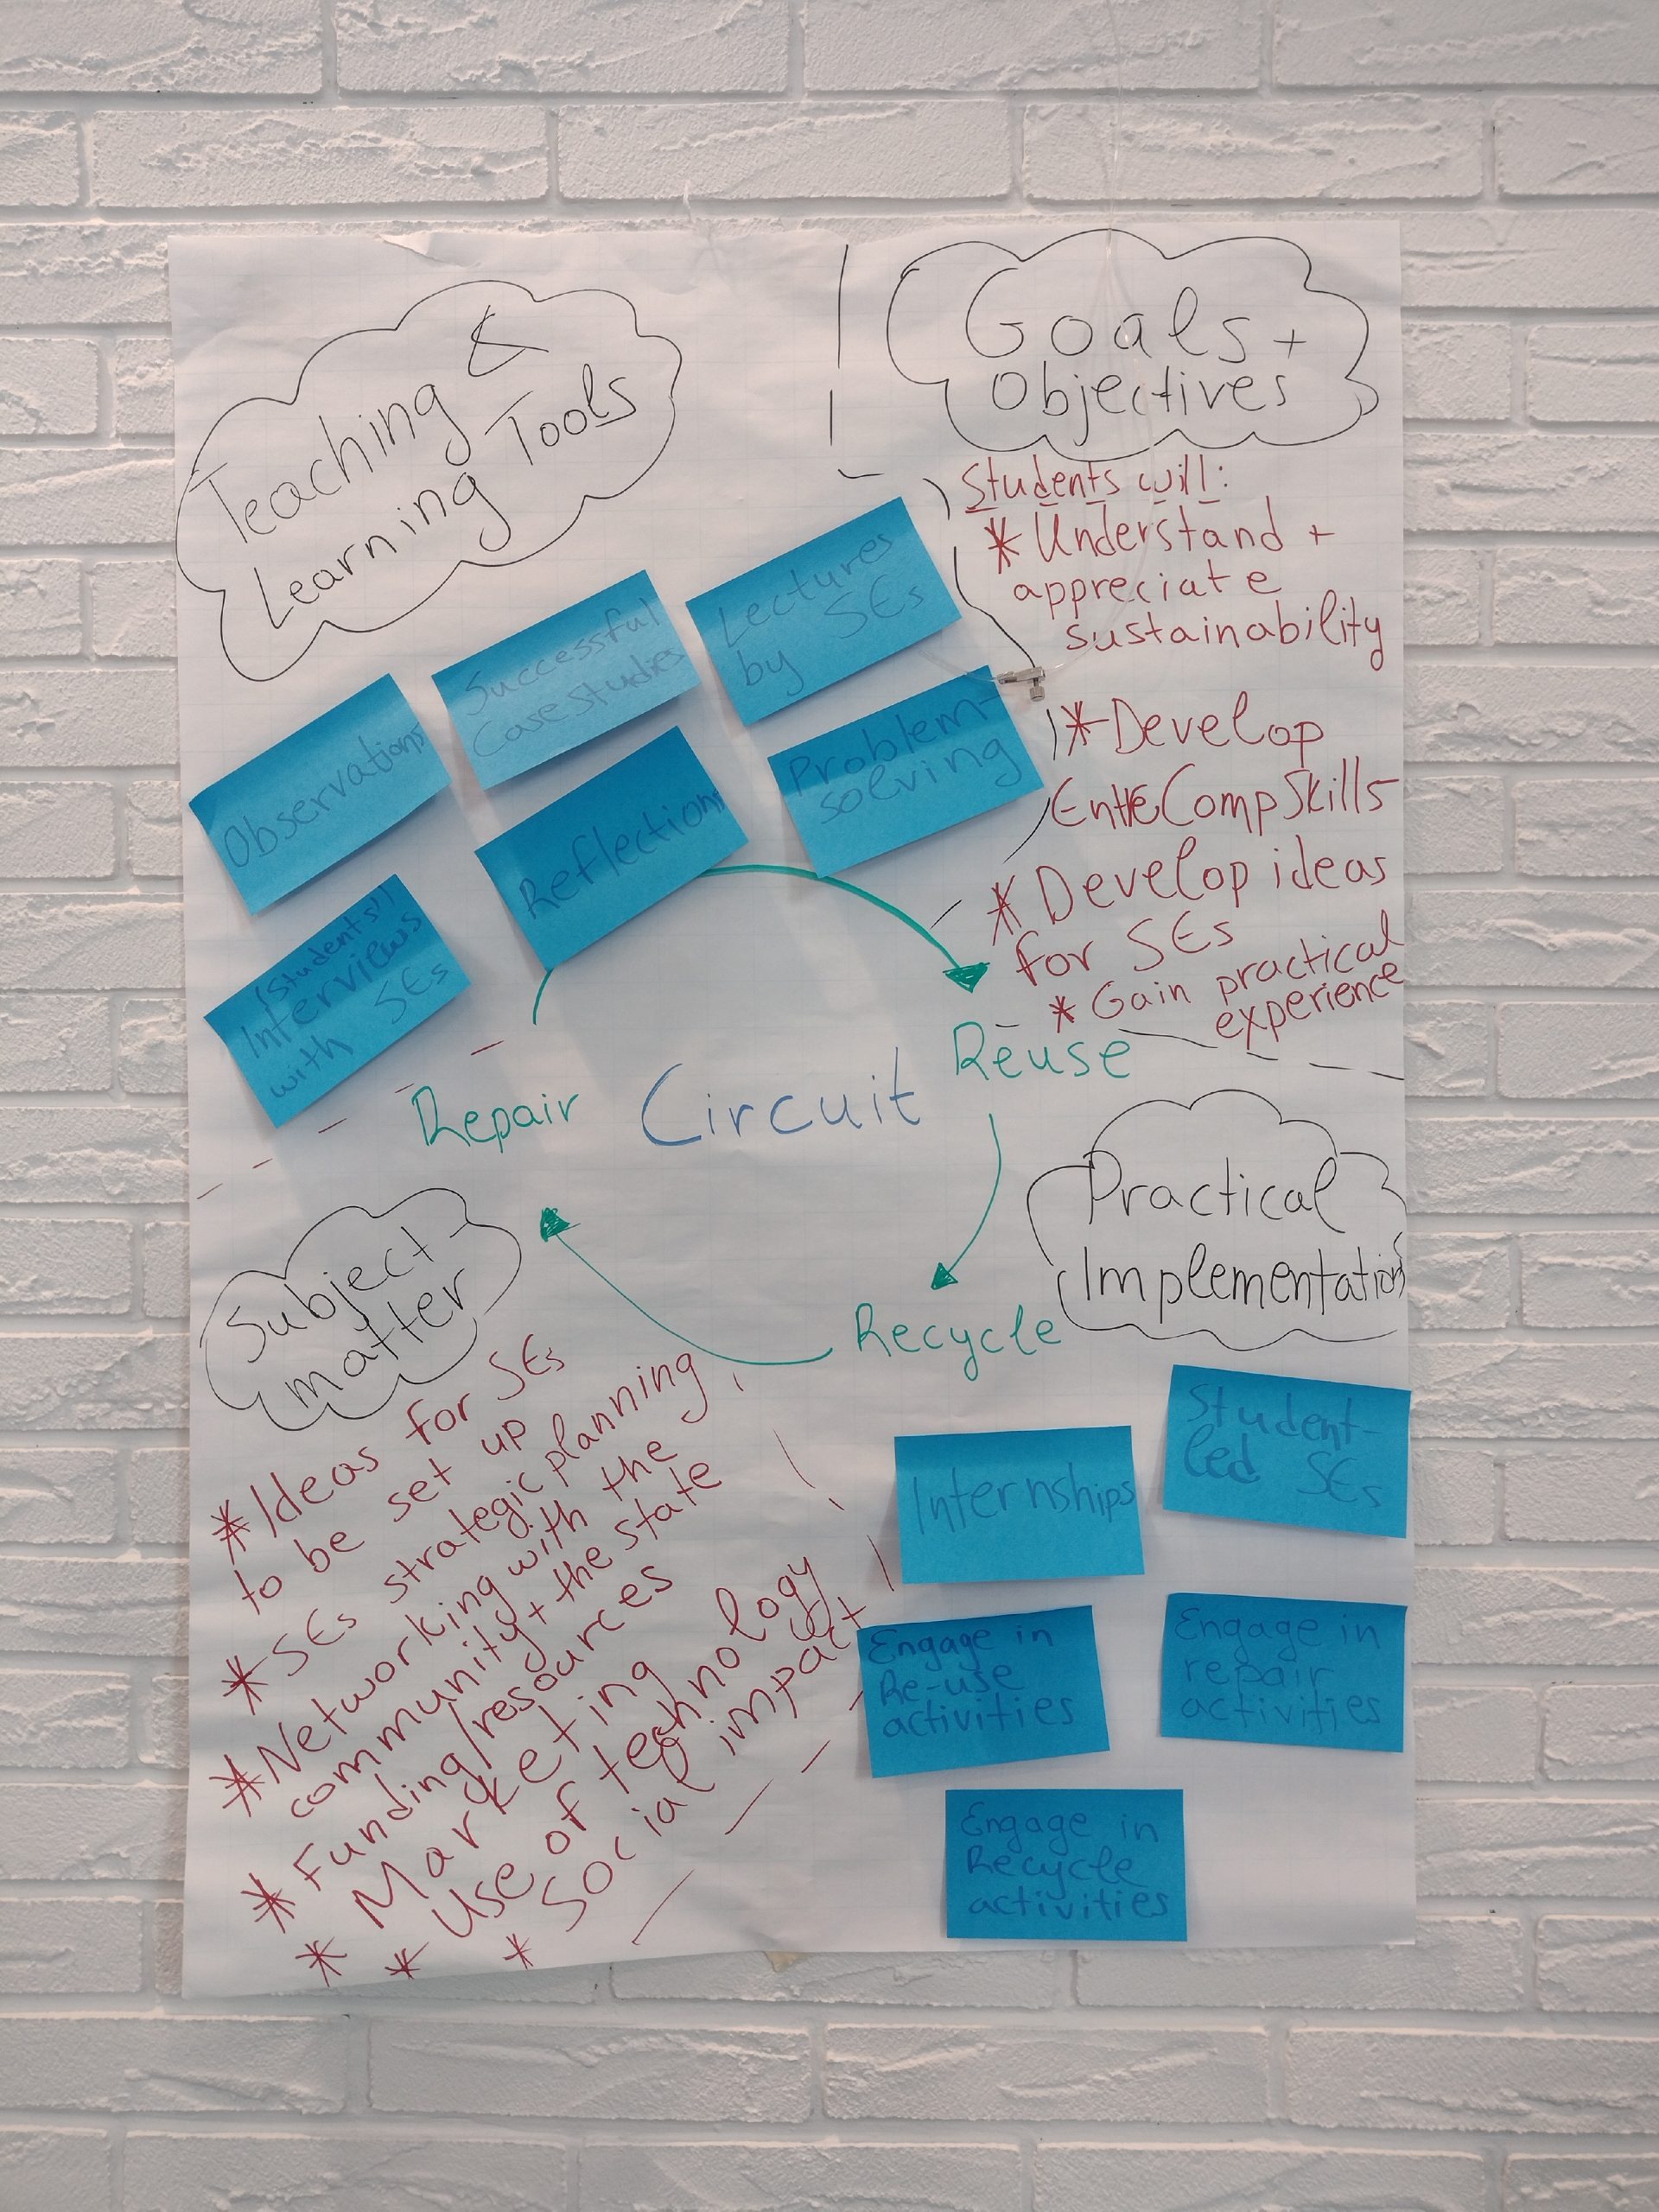 Teaching &
Learning Tools
Observations
Successful
Case Studies
Lectures
by SEs
(Students')
Interviews
with SEs
Reflections
Problem-
solving
Goals +
Objectives
Students will:
* Understand +
appreciate
sustainability
* Develop
EntreComp Skills
* Develop ideas
for SEs
* Gain practical
experience
Repair
Circuit
Reuse
Recycle
Subject-
matter
* Ideas for SEs
to be set up
* SEs strategic planning
* Networking with the
community + the state
* Funding/resources
* Marketing
* Use of technology
* Social impact
Practical
Implementation
Internships
Student-
led SEs
Engage in
Re-use
activities
Engage in
repair
activities
Engage in
Recycle
activities